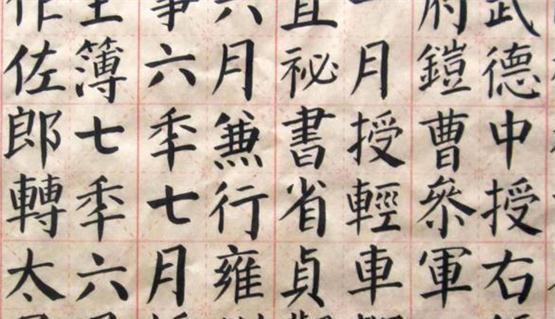 武德中授右
府鎧曹參軍
月授輕車
直祕書省貞觀
六月兼行雍
事六年七月
主簿七年六月
作佐郎轉太